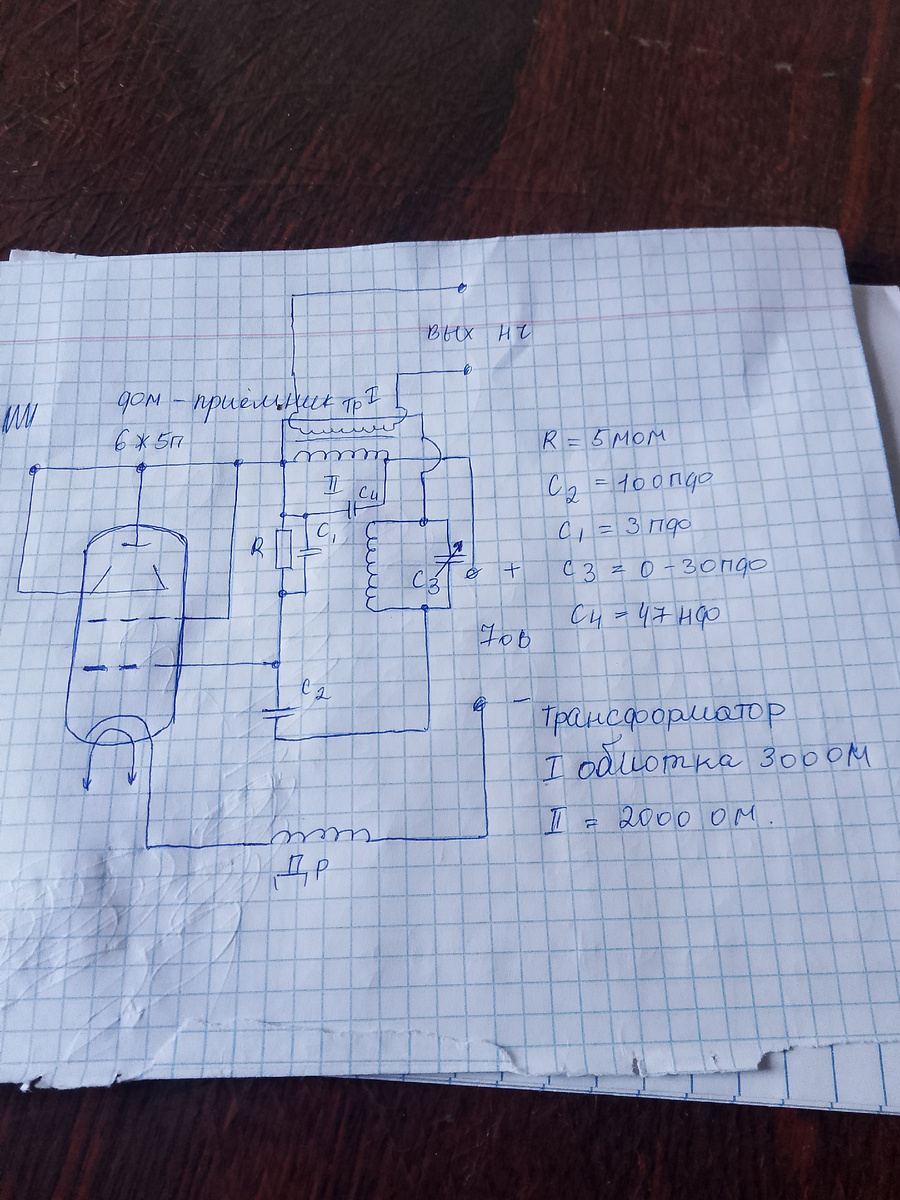 вых нч
дом - приёмник
Тр I
6ж5п
II
C4
R
C1
C3
+
7ов
C2
-
Др
R = 5мом
C2 = 100пф
C1 = 3пф
C3 = 0-30пф
C4 = 47нф
Трансформатор
I обмотка 300 ом
II = 2000 ом.